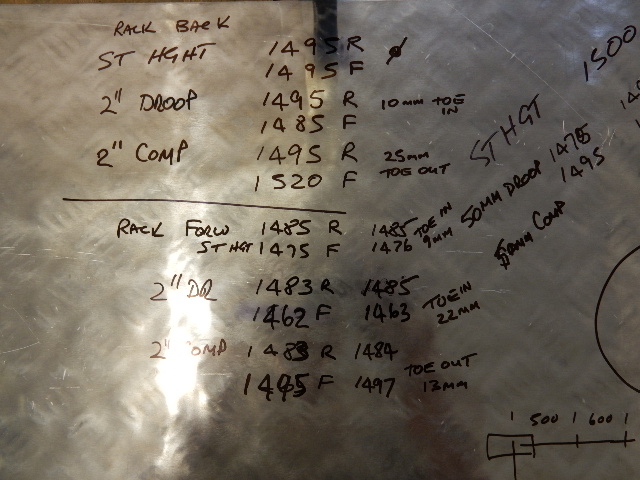 RACK BACK
ST HGHT 1495 R ø
1495 F
2" DROOP 1495 R 10mm TOE IN
1485 F
2" COMP 1495 R 25mm
1520 F TOE OUT
RACK FORW 1485 R 1485 TOE IN
ST HGT 1475 F 1476 9mm
2" DR 1483 R 1485 TOE IN
1462 F 1463 22mm
2" COMP 1483 R 1484 TOE OUT
1495 F 1497 13mm
1500
ST HGT
50MM DROOP 1475
1495
50MM COMP
500 600